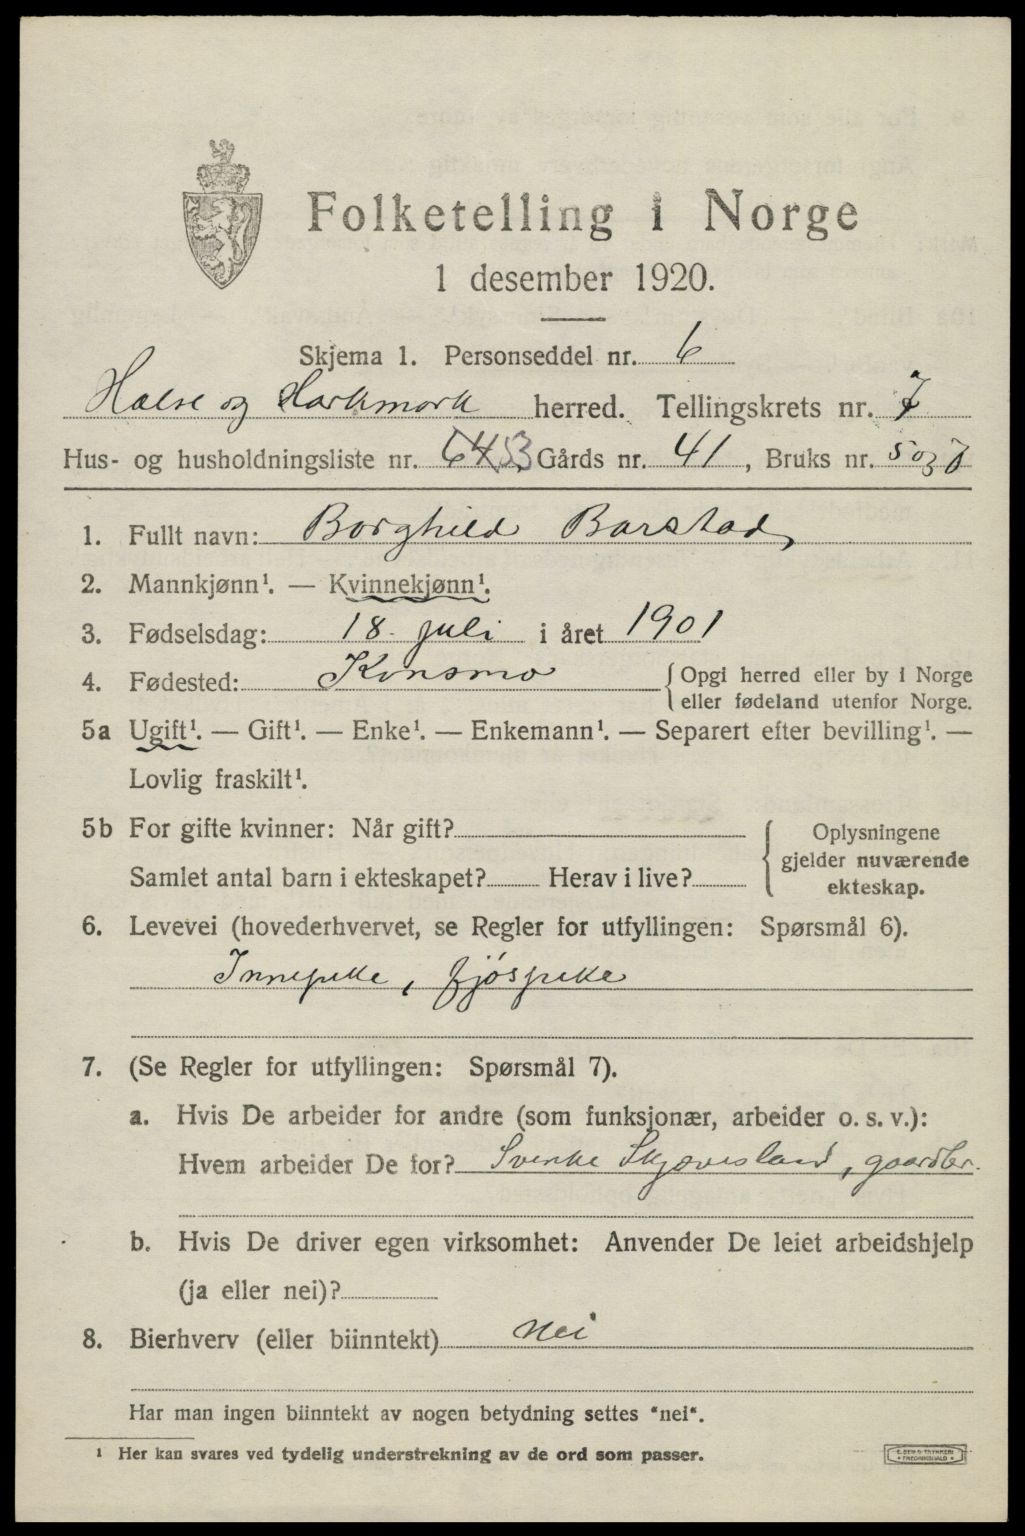 Folketelling i Norge
1 desember 1920.
Skjema 1. Personseddel nr. 6
Halse og Harkmark herred. Tellingskrets nr. 7
Hus- og husholdningsliste nr. 53, Gårds nr. 41, Bruks nr. 5 og 7
1. Fullt navn: Borghild Barstad,
2. Mannkjønn¹. — Kvinnekjønn¹.
3. Fødselsdag: 18. juli i året 1901
4. Fødested: Konsmo { Opgi herred eller by i Norge
eller fødeland utenfor Norge.
5a Ugift¹. — Gift¹. — Enke¹. — Enkemann¹. — Separert efter bevilling¹. —
Lovlig fraskilt¹.
5b For gifte kvinner: Når gift?
Samlet antal barn i ekteskapet? Herav i live?
Oplysningene
gjelder nuværende
ekteskap.
6. Levevei (hovederhvervet, se Regler for utfyllingen: Spørsmål 6).
Innepike, fjøspike
7. (Se Regler for utfyllingen: Spørsmål 7).
a. Hvis De arbeider for andre (som funksjonær, arbeider o. s. v.):
Hvem arbeider De for? Svenke Skjævesland, gaardbr.
b. Hvis De driver egen virksomhet: Anvender De leiet arbeidshjelp
(ja eller nei)?
8. Bierhverv (eller biinntekt) nei
Har man ingen biinntekt av nogen betydning settes "nei".
¹ Her kan svares ved tydelig understrekning av de ord som passer.